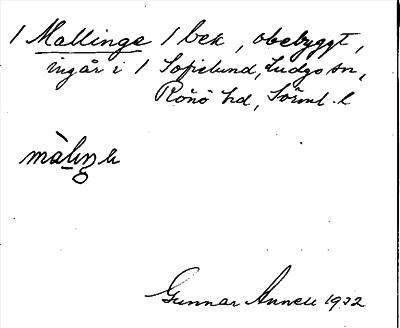 1 Mallinge 1 bek, obebyggt,
ingår i 1 Sofielund, Ludgo sn,
Rönö hd, Sörml. l
Gunnar Annell 1932